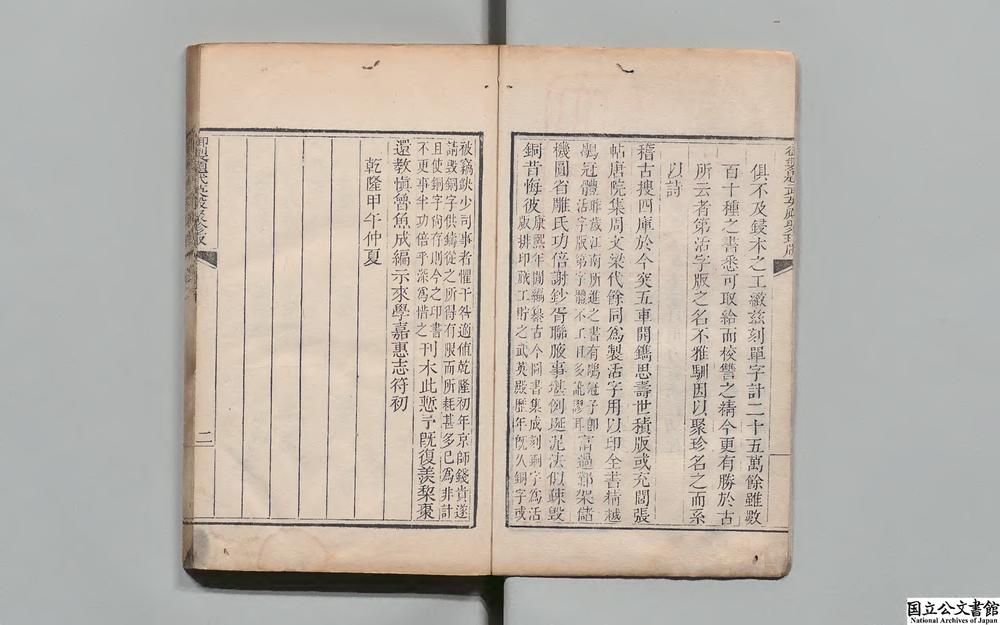 御製題武英殿聚珍版
俱不及鋟木之工緻茲刻單字計二十五萬餘雖數
百十種之書悉可取給而校讐之精今更有勝於古
所云者第活字版之名不雅馴因以聚珍名之而系
以詩
稽古搜四庫於今突五車開鐫思壽世積版或充閭張
帖唐院集周文梁代餘同為製活字用以印全書精越
鶡冠體昨歲江南所進之書有鶡冠子即活字版第字體不工且多訛謬耳富過鄴架儲
機圓省雕氏功倍謝鈔胥聯腋事堪例斑泥法似疎毀
銅昔悔彼康熙年間編纂古今圖書集成刻銅字為活版排印蕆工貯之武英殿歷年既久銅字或
被竊缺少司事者懼干咎適值乾隆初年京師錢貴遂請毀銅字供鑄從之所得有限而所耗甚多已為非計
且使銅字尚存則今之印書不更事半功倍乎深為惜之刊木此慙予既復羨梨棗
還教慎魯魚成編示來學嘉惠志符初
乾隆甲午仲夏
御製題武英殿聚珍版
二
国立公文書館
National Archives of Japan